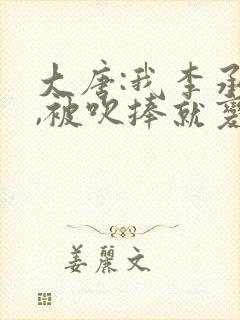 大唐:我李承
,被吹捧就变
姜丽文